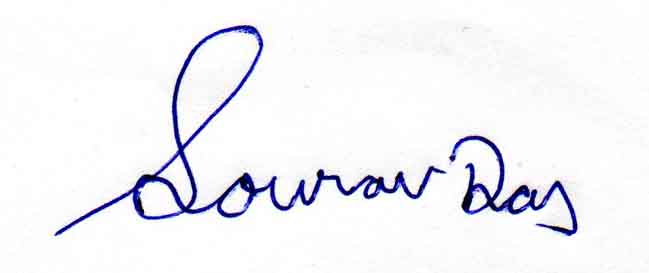 Sourav Das